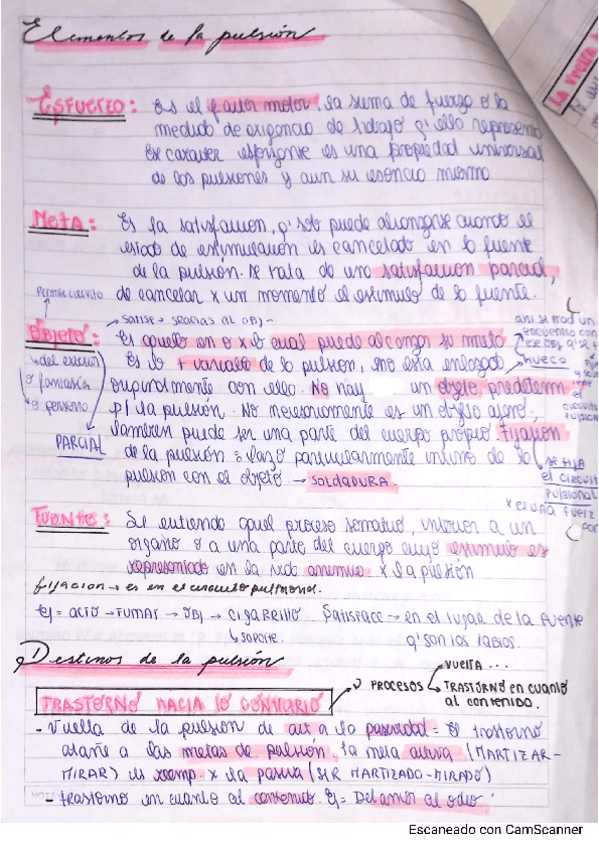 Elementos de la pulsión
ESFUERZO: Es el factor motor, la suma de fuerza o la
medida de exigencia de trabajo q' ella representa
Ese carácter esforzante es una propiedad universal
de las pulsiones y aun su esencia misma
Meta: Es la satisfacción, q' solo puede alcanzarse cuando el
estado de estimulación es cancelado en la fuente
de la pulsión. Se trata de una satisfacción parcial,
de cancelar x un momento el estímulo de la fuente.
Permite circuito
satisf → gracias al obj -
OBJETO: Es aquello en o x lo cual puede alcanzar su meta
Es lo + variable de la pulsión, no está enlazado
originalmente con ella. No hay un objeto predeterm
p/ la pulsión. No necesariamente es un objeto ajeno,
también puede ser una parte del cuerpo propio. Fijación
de la pulsión: lazo particularmente íntimo de la
pulsión con el objeto → SOLDADURA.
del exterior
o fantasía
o persona
PARCIAL
encuentro con
hueco
el
circuito
se fija
el circuito
Pulsional
x es una fuerz
FUENTE: Se entiende aquel proceso somático, interior a un
órgano o a una parte del cuerpo cuyo estímulo es
representado en la vida anímica x la pulsión
fijación → es en el circuito pulsional.
Ej = ACTO → FUMAR → OBJ → CIGARRILLO. Satisface → en el lugar de la fuente
↳ soporte. q' son los labios.
Destinos de la pulsión
TRASTORNO HACIA LO CONTRARIO → 2 PROCESOS
VUELTA ...
TRASTORNO en cuanto
al contenido.
- Vuelta de la pulsión de act a la pasividad = El trastorno
atañe a las metas de pulsión, la meta activa (MARTIZAR-
MIRAR) es reemp. x la pasiva (SER MARTIZADO-MIRADO)
- trastorno en cuanto al contenido. Ej = Del amor al odio
Escaneado con CamScanner